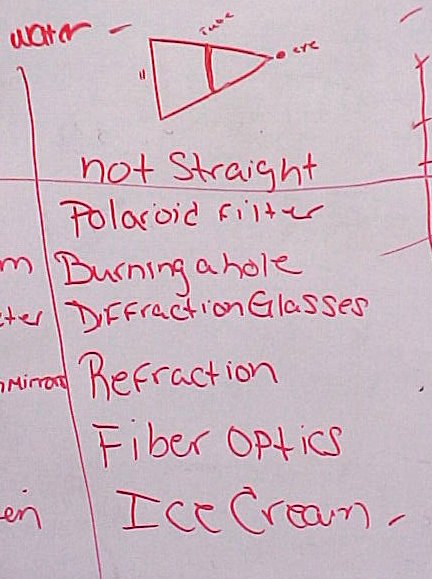 water -
tube
eye
"
not Straight
Polaroid Filter
m Burning a hole
ter Diffraction Glasses
Mirror Refraction
Fiber Optics
en Ice Cream -